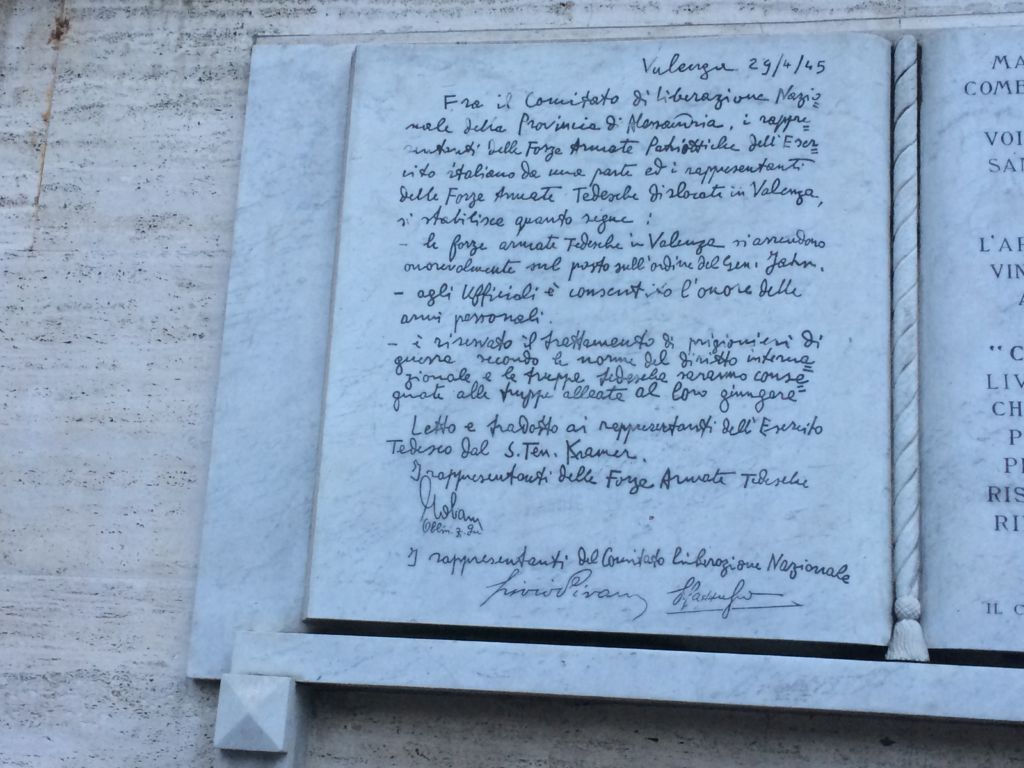 Valenza 29/4/45
Fra il Comitato di liberazione Nazio=
nale della Provincia di Alessandria, i rappre=
sentanti delle Forze Armate Patriottiche dell'Eser=
cito italiano da una parte ed i rappresentanti
delle Forze Armate Tedesche dislocate in Valenza,
si stabilisce quanto segue :
- le forze armate Tedesche in Valenza si arrendono
onorevolmente sul posto sull'ordine del Gen. Jahn.
- agli Ufficiali è consentito l'onore delle
armi personali.
- è riservato il trattamento di prigionieri di
guerra secondo le norme del diritto interna=
zionale e le truppe tedesche saranno conse=
gnate alle truppe alleate al loro giungere
Letto e tradotto ai rappresentanti dell'Esercito
Tedesco dal S. Ten. Kramer.
I rappresentanti delle Forze Armate Tedesche
I rappresentanti del Comitato Liberazione Nazionale
Livio Pivano
MA
COMB
VOI
SAN
L'AR
VIN
A
"C
LIV
CH
P
PE
RIS
RI
IL C